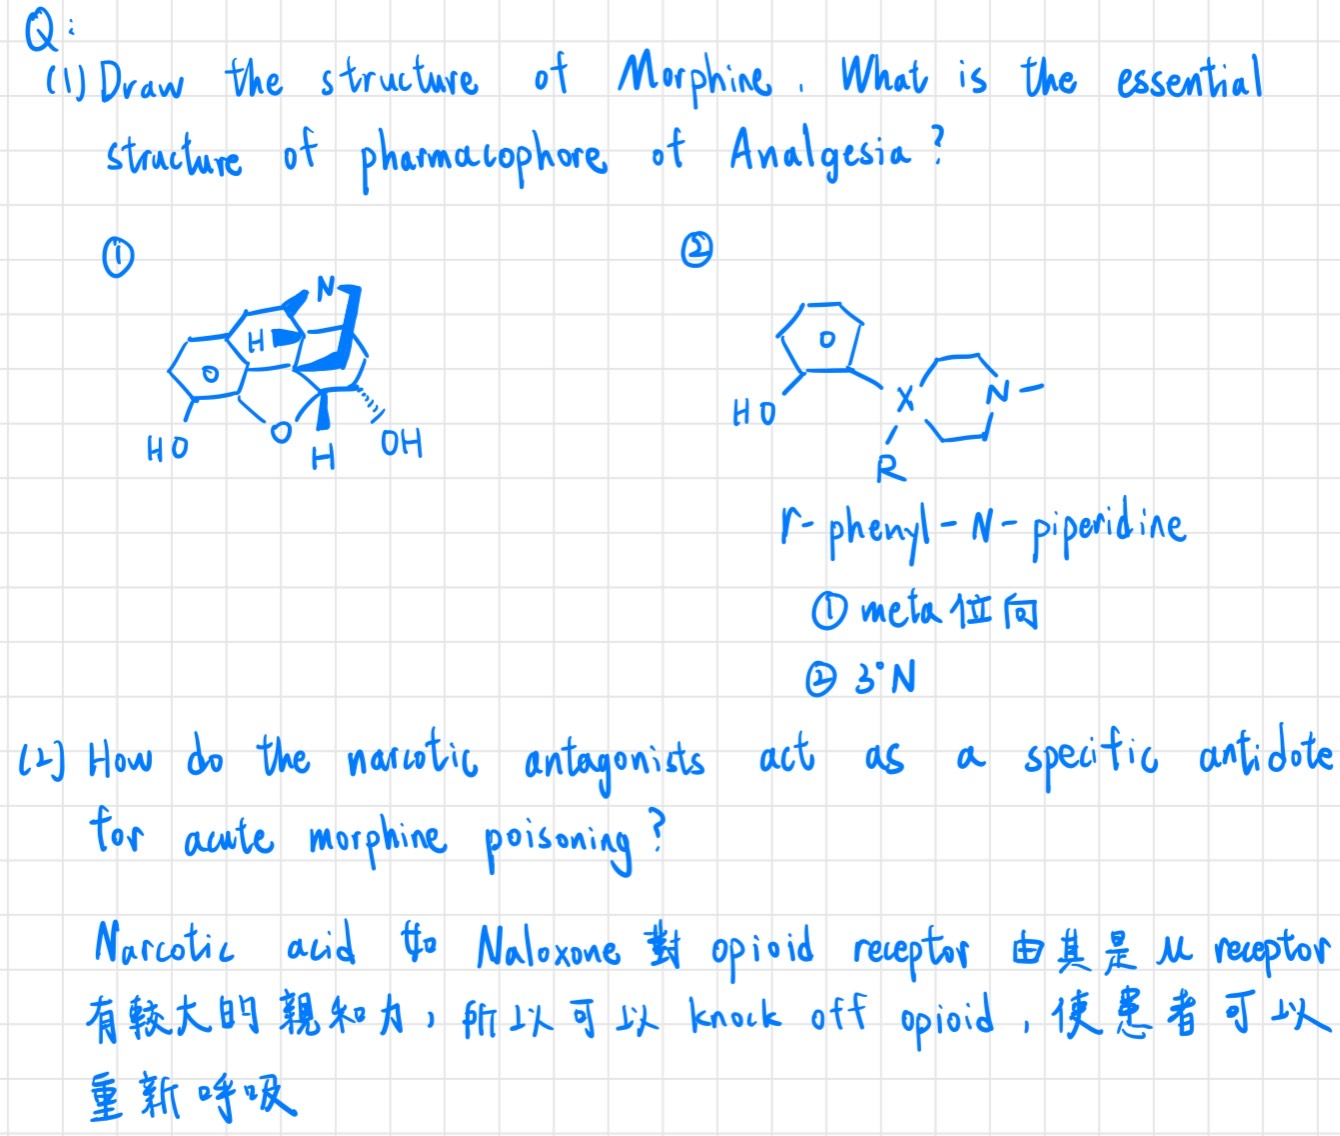 Q:
(1) Draw the structure of Morphine. What is the essential
structure of pharmacophore of Analgesia?
① ②
N
H
HO O H OH
HO X N
R
r-phenyl-N-piperidine
① meta 位向
② 3°N
(2) How do the narcotic antagonists act as a specific antidote
for acute morphine poisoning?
Narcotic acid 如 Naloxone 對 opioid receptor 由其是 μ receptor
有較大的親和力，所以可以 knock off opioid，使患者可以
重新呼吸